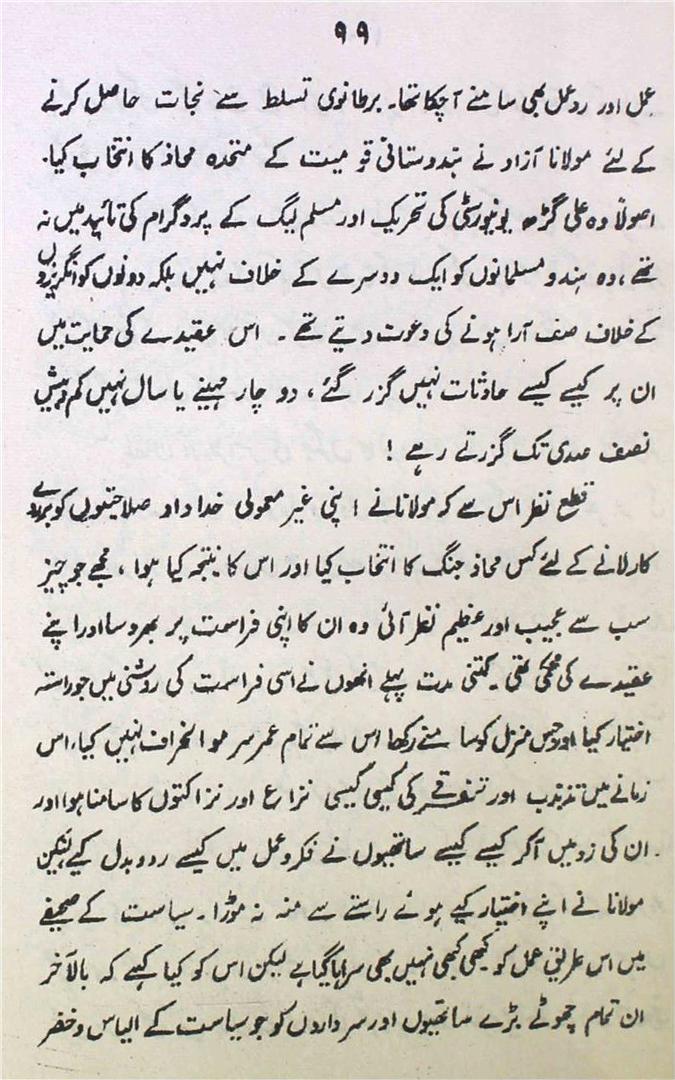 ۹۹
عمل اور ردِ عمل بھی سامنے آ چکا تھا۔ برطانوی تسلط سے نجات حاصل کرنے
کے لئے مولانا آزاد نے ہندوستانی قومیت کے متحدہ محاذ کا انتخاب کیا۔
اصولاً وہ علی گڑھ یونیورسٹی کی تحریک اور مسلم لیگ کے پروگرام کی تائید میں نہ
تھے، وہ ہندو مسلمانوں کو ایک دوسرے کے خلاف نہیں بلکہ دونوں کو انگریزوں
کے خلاف صف آرا ہونے کی دعوت دیتے تھے۔ اس عقیدے کی حمایت میں
ان پر کیسے کیسے حادثات نہیں گزر گئے، دو چار مہینے یا سال نہیں کم و بیش
نصف صدی تک گزرتے رہے!
قطع نظر اس سے کہ مولانا نے اپنی غیر معمولی خداداد صلاحیتوں کو بروئے
کار لانے کے لئے کس محاذ جنگ کا انتخاب کیا اور اس کا نتیجہ کیا ہوا، مجھے جو چیز
سب سے عجیب اور عظیم نظر آئی وہ ان کا اپنی فراست پر بھروسا اور اپنے
عقیدے کی محکمی تھی۔ کتنی مدت پہلے انھوں نے اسی فراست کی روشنی میں جو راستہ
اختیار کیا اور جس منزل کو سامنے رکھا اس سے تمام عمر سرِ مو انحراف نہیں کیا، اس
زمانے میں تذبذب اور تفرقے کی کیسی کیسی نزاع اور نزاکتوں کا سامنا ہوا اور
ان کی زد میں آکر کیسے کیسے ساتھیوں نے فکر و عمل میں کیسے ردو بدل کیے لیکن
مولانا نے اپنے اختیار کیے ہوئے راستے سے منہ نہ موڑا۔ سیاست کے صحیفے
میں اس طریقِ عمل کو کبھی کبھی نہیں بھی سراہا گیا ہے لیکن اس کو کیا کہیے کہ بالآخر
ان تمام چھوٹے بڑے ساتھیوں اور سرداروں کو جو سیاست کے الیاس و خضر